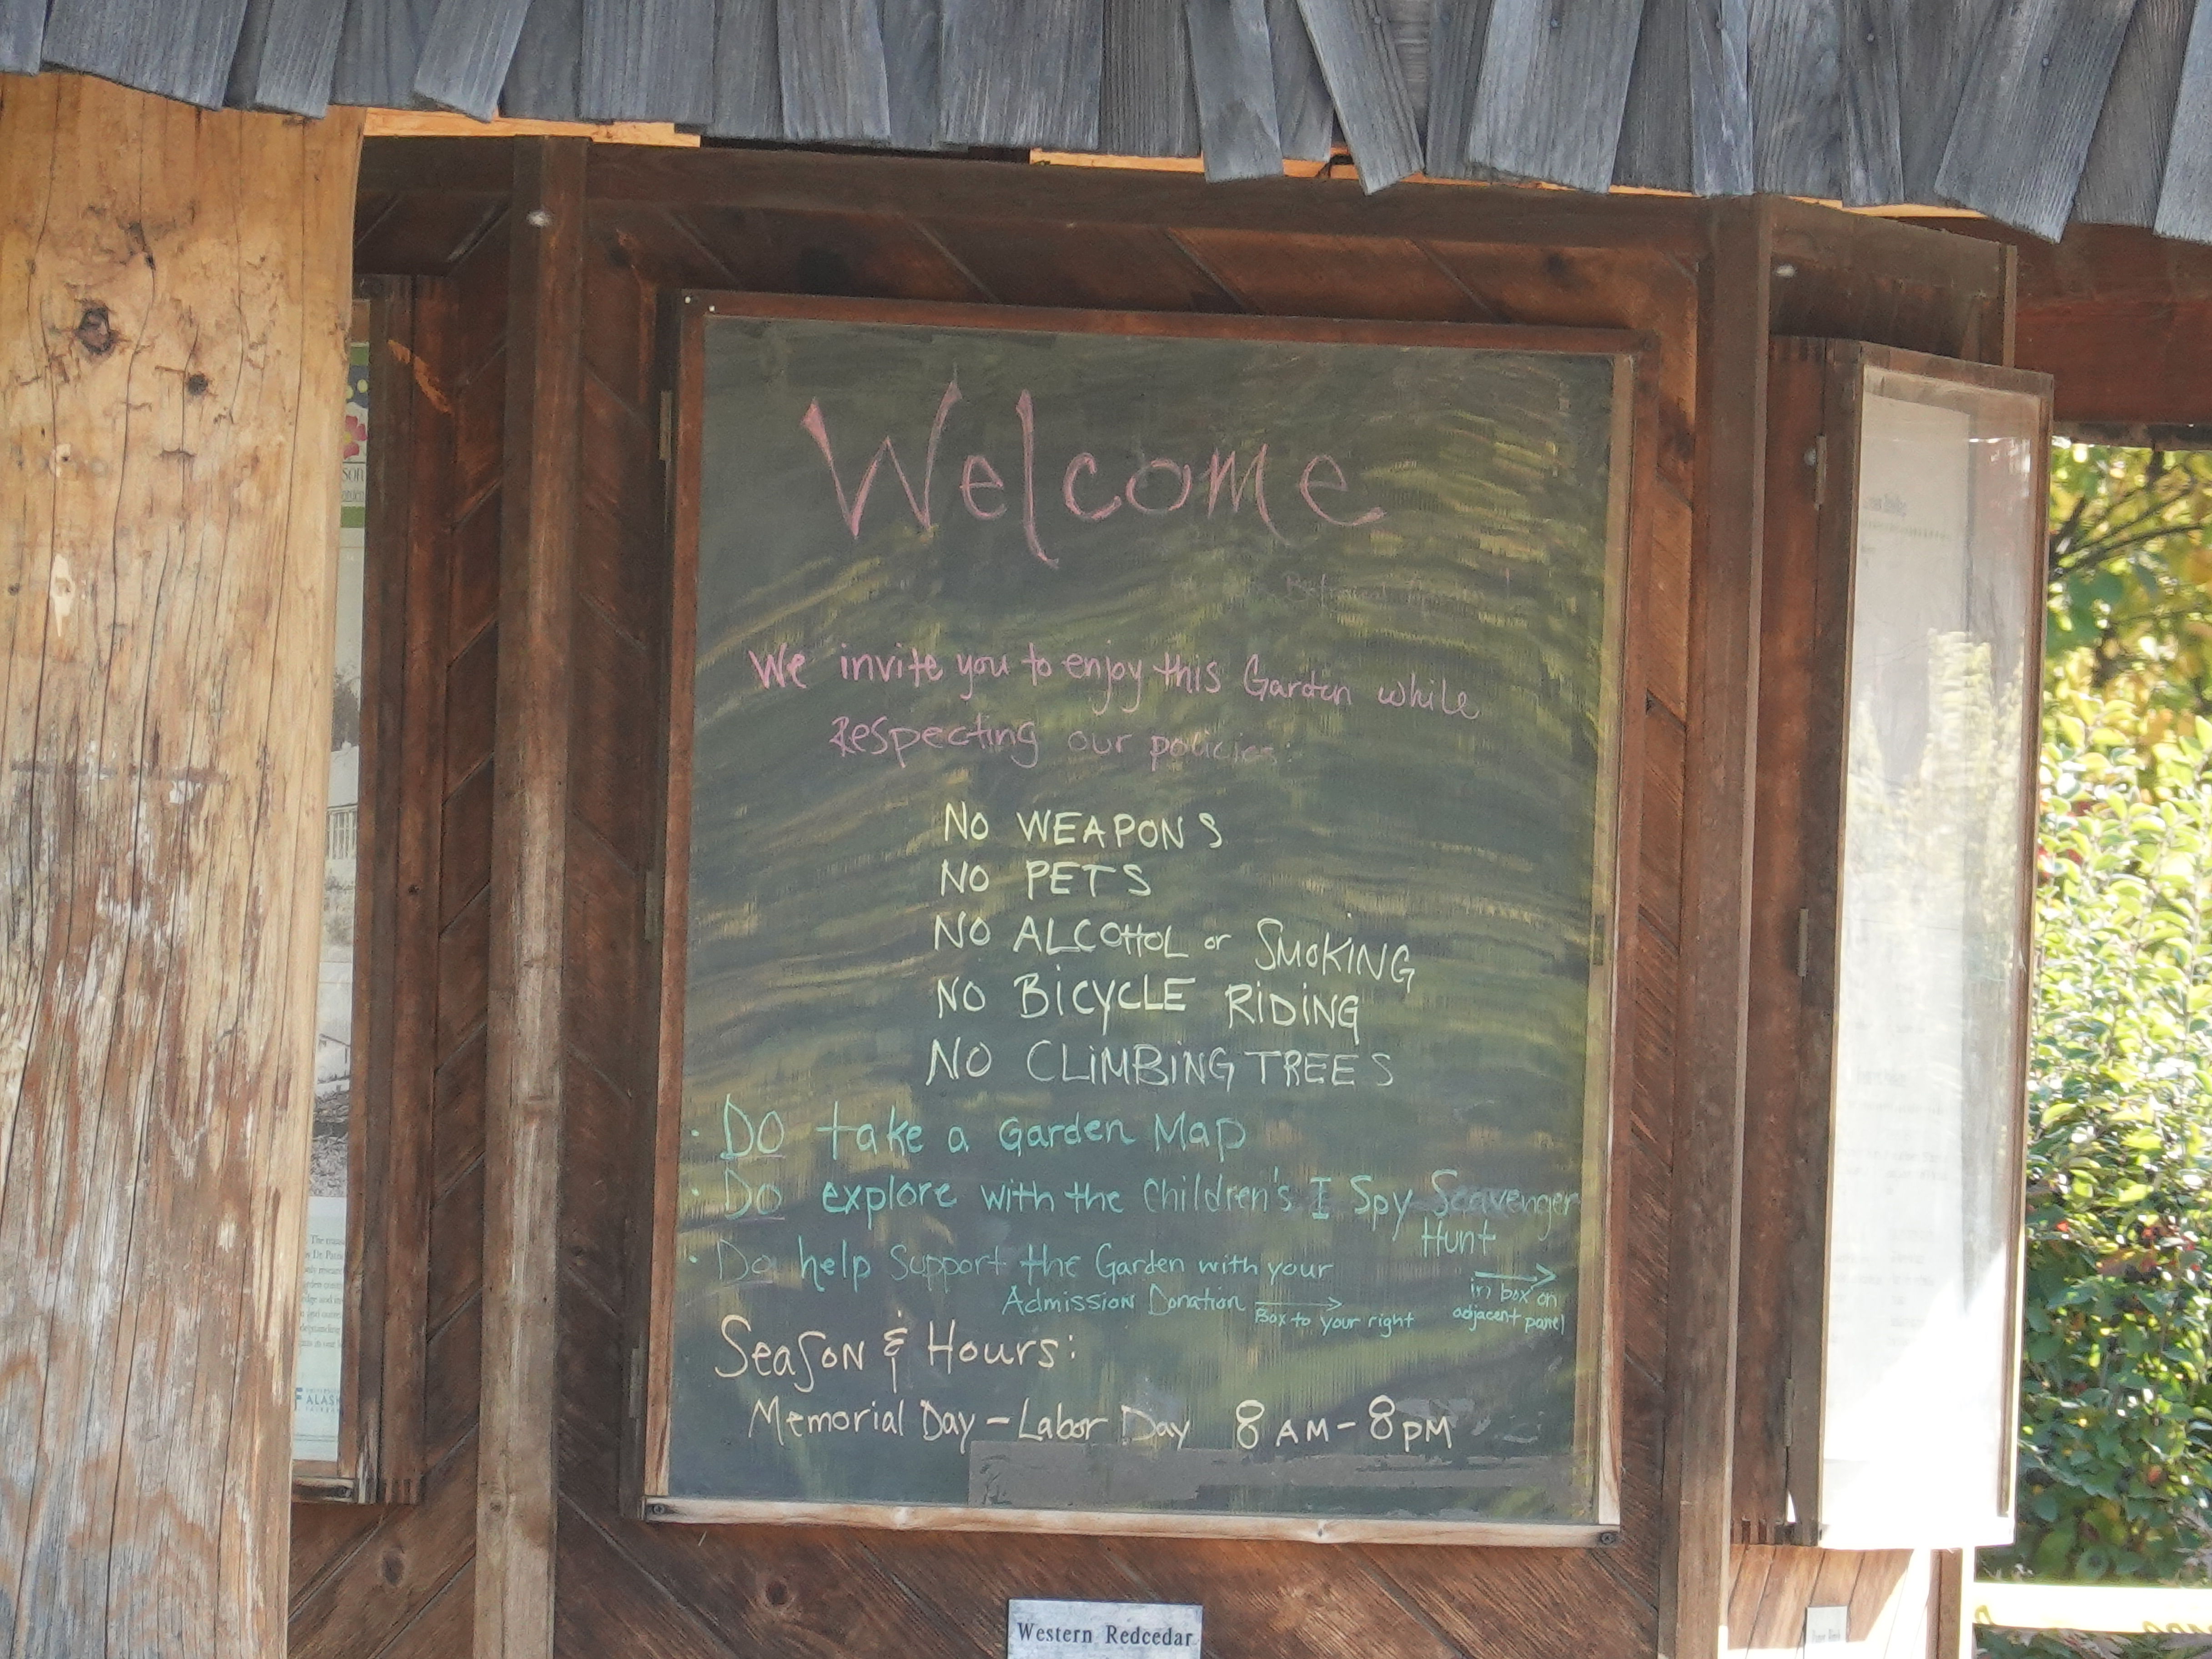 Welcome
We invite you to enjoy this Garden while
Respecting our policies:
NO WEAPONS
NO PETS
NO ALCOHOL or SMOKING
NO BICYCLE RIDING
NO CLIMBING TREES
· DO take a Garden Map
· Do explore with the Children's I Spy Scavenger
Hunt
in box on
adjacent panel
· Do help Support the Garden with your
Admission Donation
Box to your right
Season & Hours:
Memorial Day - Labor Day 8 AM - 8 PM
Western Redcedar